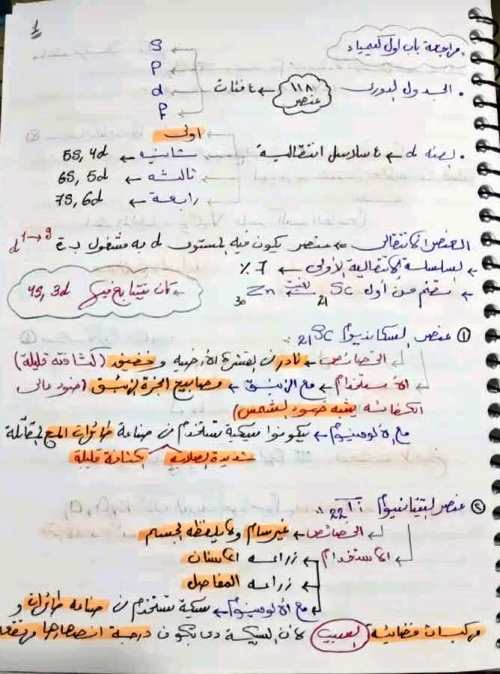 1
مراجعة باب اول كيمياء
S
P
d
F
الجدول الدورى ← ١١٨ عنصر ← ٤ فئات
اولى
الفئه d ← ٤ سلاسل انتقالية ← ثانيه ← 5S, 4d
ثالثه ← 6S, 5d
رابعة ← 7S, 6d
العنصر الانتقالى ← عنصر يكون فيه المستوى d به مشغول بـ d 1→9
السلسلة الانتقالية الأولى ← 7 ٪
تتضمن من أول 21 Sc ← 30 Zn
4S, 3d
① عنصر السكانديوم 21Sc
الخصائص ← نادر فى القشرة الأرضيه و خفيف (كثافته قليلة)
الاستخدام ← مع الزئبق ← مصابيح ابخرة الزئبق (ضوء عالى
الكفائه يشبه ضوء الشمس)
مع الألومنيوم ← يكونوا سبيكة تستخدم فى صناعة طائرات الميج المقاتلة
شديدة الصلابه كثافة قليلة
② عنصر التيتانيوم 22Ti
الخصائص ← غير سام ولا يلفظه الجسم
الاستخدام ← زراعه الاسنان
زراعه المفاصل
مع الألومنيوم ← سبيكة تستخدم فى صناعه طائرات و
مركبات فضائية السبب لان السبيكة دى بتكون درجة انصهارها مرتفعه